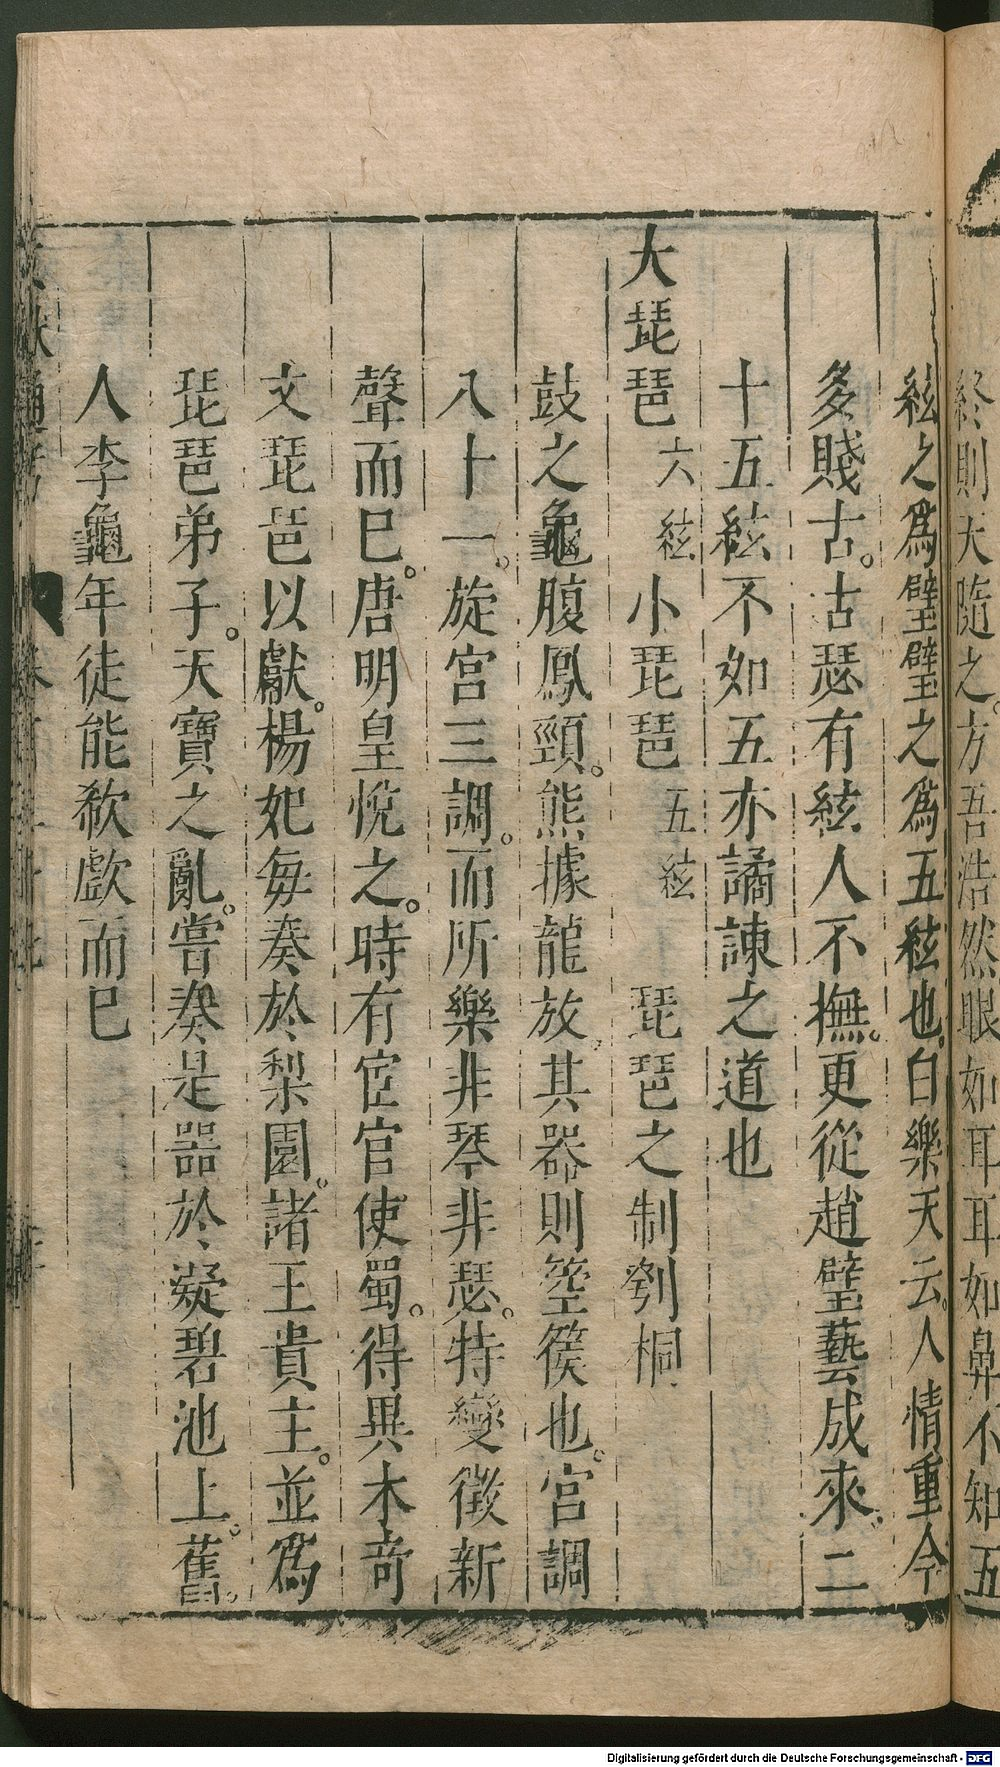 終則大隨之。方吾浩然眼如耳耳如鼻不知五
絃之爲璧璧之爲五絃也。白樂天云。人情重今
多賤古。古瑟有絃人不撫。更從趙璧藝成來。二
十五絃不如五亦譎諫之道也
大琵琶 六絃 小琵琶 五絃 琵琶之制刳桐
鼓之龜腹鳳頸。熊據龍放。其器則箜篌也。宮調
八十一。旋宮三調。而所樂非琴非瑟。特變徵新
聲而巳。唐明皇悅之。時有宦官使蜀。得異木奇
文琵琶以獻。楊妃每奏於梨園。諸王貴主。並爲
琵琶弟子。天寶之亂。嘗奏是器於凝碧池上。舊。
人李龜年徒能欷歔而巳
Digitalisierung gefördert durch die Deutsche Forschungsgemeinschaft - DFG